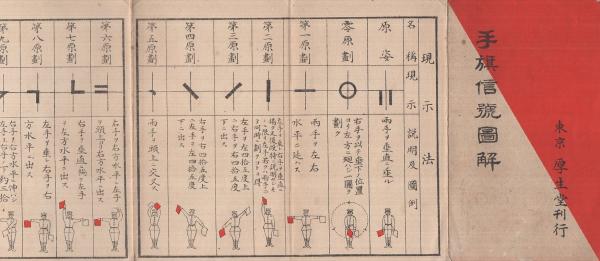 手旗信號圖解
東京 厚生堂刊行
現示法
名稱
現示
說明及圖例
原姿
兩手ヲ垂直ニ垂ル
零原劃
右手ヲ以テ垂下ノ位置
ヨリ左方ニ廻ハシ一圓ヲ
劃ク
第一原劃
兩手ヲ左右
水平ニ延ヘス
第二原劃
第三原劃
左手ヲ左四拾五度上
ニ右手ヲ右四拾五度
下ニ出ス
第四原劃
右手ヲ右四拾五度上
ニ左手ヲ左四拾五度
下ニ出ス
第五原劃
兩手ヲ頭上ニ交叉ス
第六原劃
右手ヲ右方水平ニ左手
ヲ頭上ニ出ス
第七原劃
右手ヲ垂直ニ左手
ヲ左方水平ニ出ス
第八原劃
左手ヲ垂ニ右手ヲ右
方水平ニ出ス
第九原劃
右手ヲ右方水平ニ伸ハシ